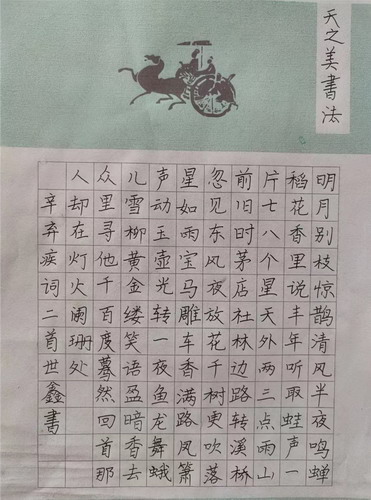 天之美書法
明月别枝惊鹊清风半夜鸣蝉
稻花香里说丰年听取蛙声一
片七八个星天外两三点雨山
前旧时茅店社林边路转溪桥
忽见东风夜放花千树更吹落
星如雨宝马雕车香满路凤箫
声动玉壶光转一夜鱼龙舞蛾
儿雪柳黄金缕笑语盈暗香去
众里寻他千百度蓦然回首那
人却在灯火阑珊处
辛弃疾词二首世鑫書